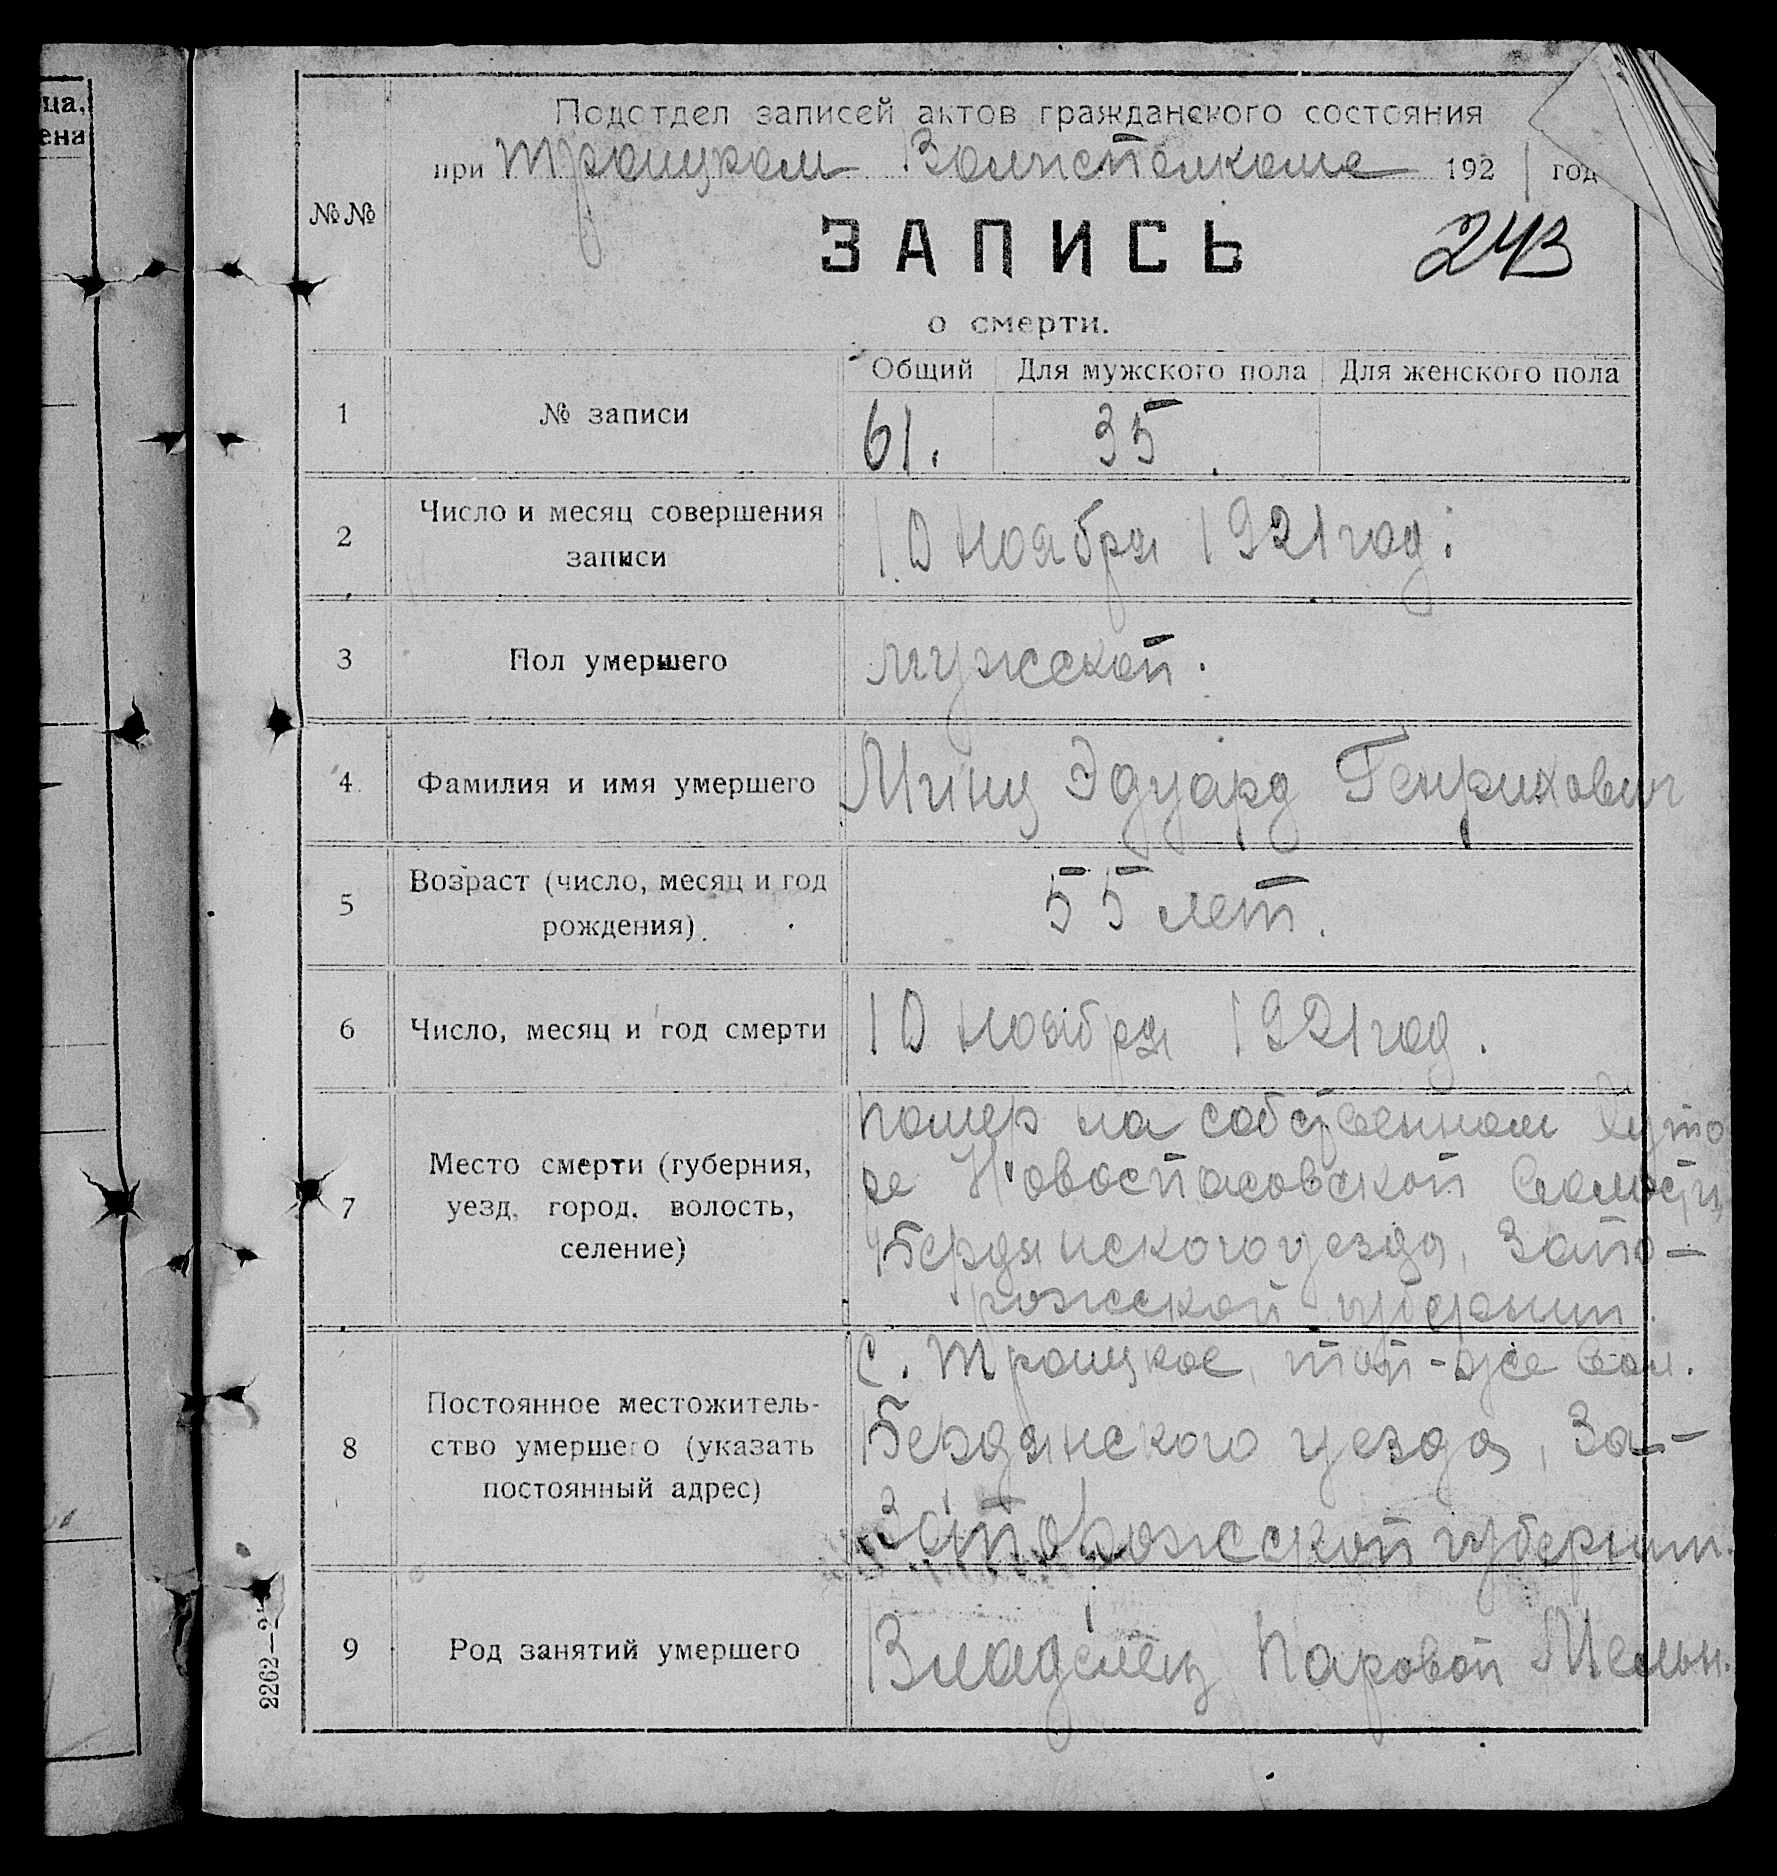 ца,
ена
Подотдел записей актов гражданского состояния
при Троицком Волисполкоме 1921 год
№№
ЗАПИСЬ
243
о смерти.
Общий Для мужского пола Для женского пола
1 № записи 61. 35.
2 Число и месяц совершения
записи
10 ноября 1921 год.
3 Пол умершего мужской.
4 Фамилия и имя умершего Минц Эдуард Генрихович
5 Возраст (число, месяц и год
рождения)
55 лет.
6 Число, месяц и год смерти 10 ноября 1921 год.
7 Место смерти (губерния,
уезд, город, волость,
селение)
помер на собственном хуто
ре Новоспасовской волости,
Бердянского уезда, Запо-
рожской губернии.
8 Постоянное местожитель-
ство умершего (указать
постоянный адрес)
С. Троицкое, той-же вол.
Бердянского уезда, За-
Запорожской губернии.
9 Род занятий умершего Владелец паровой Мельн.
2262—2